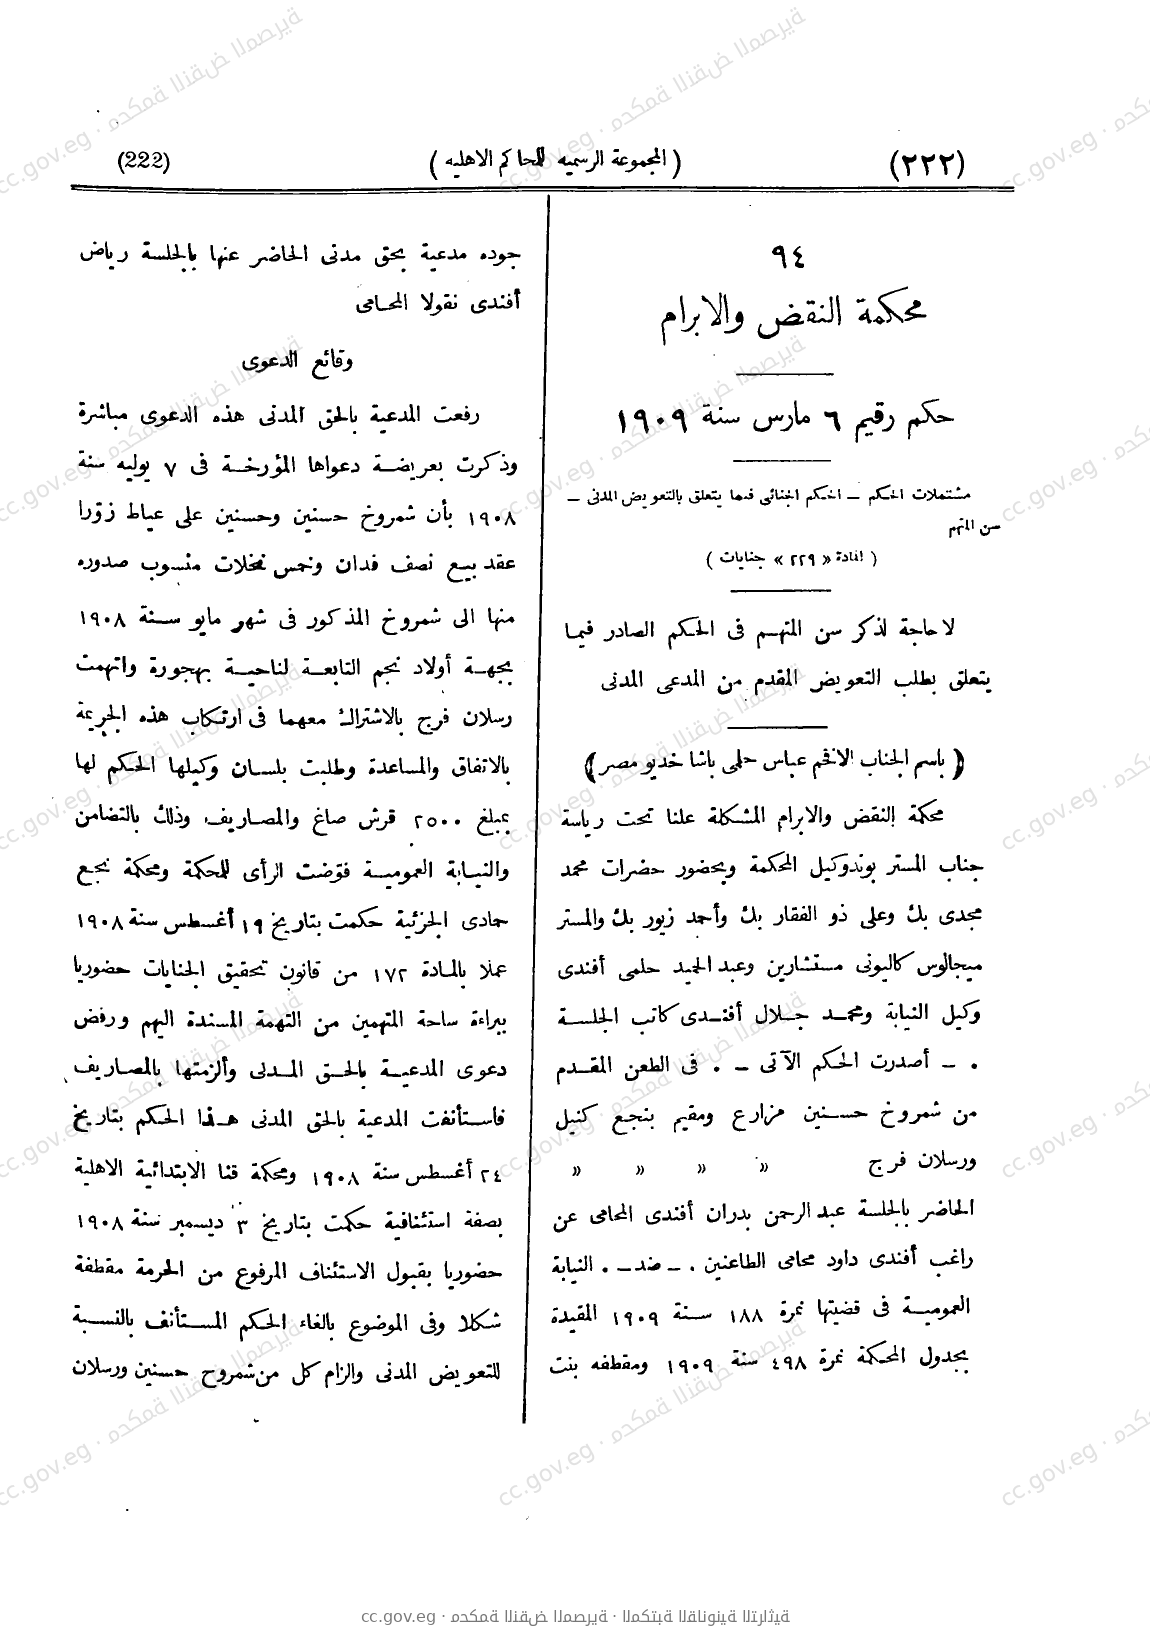 (٢٢٢)
(المجموعة الرسميه للحاكم الاهليه)
(222)
٩٤
محكمة النقض والابرام
حكم رقيم ٦ مارس سنة ١٩٠٩
مشتملات الحكم – الحكم الجنائى فيما يتعلق بالتعويض المدنى –
سن المتهم
(المادة «٢٢٩» جنايات)
لا حاجة لذكر سن المتهم فى الحكم الصادر فيما
يتعلق بطلب التعويض المقدم من المدعى المدنى
(باسم الجناب الافخم عباس حلمى باشا خديو مصر)
محكمة النقض والابرام المشكلة علنا تحت رياسة
جناب المستر بوندوكيل المحكمة وبحضور حضرات محمد
مجدى بك وعلى ذو الفقار بك وأحمد زيور بك والمستر
ميجالوس كاليونى مستشارين وعبد الحميد حلمى أفندى
وكيل النيابة ومحمد جلال أفندى كاتب الجلسة
. – أصدرت الحكم الآتى – . فى الطعن المقدم
من شمروخ حسنين مزارع ومقيم بنجع كنيل
ورسلان فرج » » » » »
الحاضر بالجلسة عبد الرحمن بدران أفندى المحامى عن
راغب أفندى داود محامى الطاعنين . – ضد – . النيابة
العمومية فى قضيتها نمرة ١٨٨ سنة ١٩٠٩ المقيدة
بجدول المحكمة نمرة ٤٩٨ سنة ١٩٠٩ ومقطفه بنت
جوده مدعية بحق مدنى الحاضر عنها بالجلسة رياض
أفندى نقولا المحامى
وقائع الدعوى
رفعت المدعية بالحق المدنى هذه الدعوى مباشرة
وذكرت بعريضة دعواها المؤرخة فى ٧ يوليه سنة
١٩٠٨ بأن شمروخ حسنين وحسنين على عياط زوّرا
عقد بيع نصف فدان وخمس نخلات منسوب صدوره
منها الى شمروخ المذكور فى شهر مايو سنة ١٩٠٨
بجهة أولاد نجم التابعة لناحية بهجورة واتهمت
رسلان فرج بالاشتراك معهما فى ارتكاب هذه الجريمة
بالاتفاق والمساعدة وطلبت بلسان وكيلها الحكم لها
بمبلغ ٢٥٠٠ قرش صاغ والمصاريف وذلك بالتضامن
والنيابة العمومية فوّضت الرأى للمحكمة ومحكمة نجع
حمادى الجزئية حكمت بتاريخ ١٩ أغسطس سنة ١٩٠٨
عملا بالمادة ١٧٢ من قانون تحقيق الجنايات حضوريا
ببراءة ساحة المتهمين من التهمة المسندة اليهم ورفض
دعوى المدعية بالحق المدنى وألزمتها بالمصاريف
فاستأنفت المدعية بالحق المدنى هذا الحكم بتاريخ
٢٤ أغسطس سنة ١٩٠٨ ومحكمة قنا الابتدائية الاهلية
بصفة استئنافية حكمت بتاريخ ٣ ديسمبر سنة ١٩٠٨
حضوريا بقبول الاستئناف المرفوع من الحرمة مقطفة
شكلا وفى الموضوع بالغاء الحكم المستأنف بالنسبة
للتعويض المدنى والزام كل من شمروخ حسنين ورسلان
cc.gov.eg · محكمة النقض المصرية · المكتبة القانونية التراثية